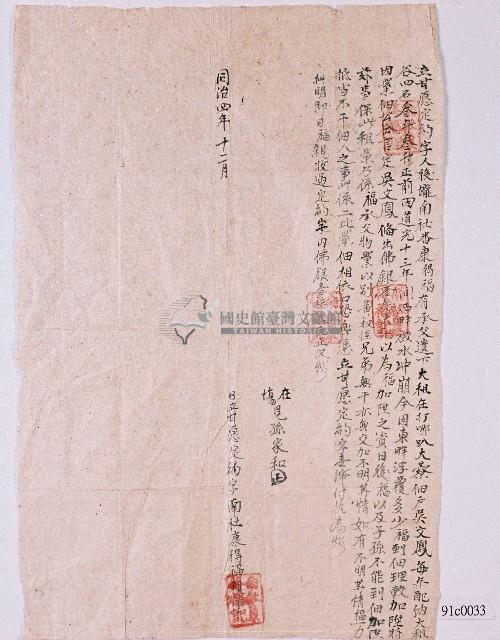 立甘愿定約字人後壠南社番康得福有承父遺下大租在打哪叭大藔佃戶吳文鳳每年配納大租
谷四石叁斗叁升正前因道光十三年間西畔被水冲崩今因東畔浮覆多少福到佃理較加陞將
因業佃公言定吳文鳳俻出佛銀大以為福加陞之資日後福以及子孫不能到佃加陞
保此租業乃係福承父物業以別叔侄兄弟無干亦無交加不明等情如有不明等情福力
抵当不干佃人之事此係二比業佃相依口恐無憑立甘愿定約字壹紙付执為炤
批明即日福親收過定約字內佛銀大員正又炤
在塲見孫家和
同治四年十二月　日立甘愿定約字南社康得福
國史館臺灣文獻館
TAIWAN HISTORICA
91c0033